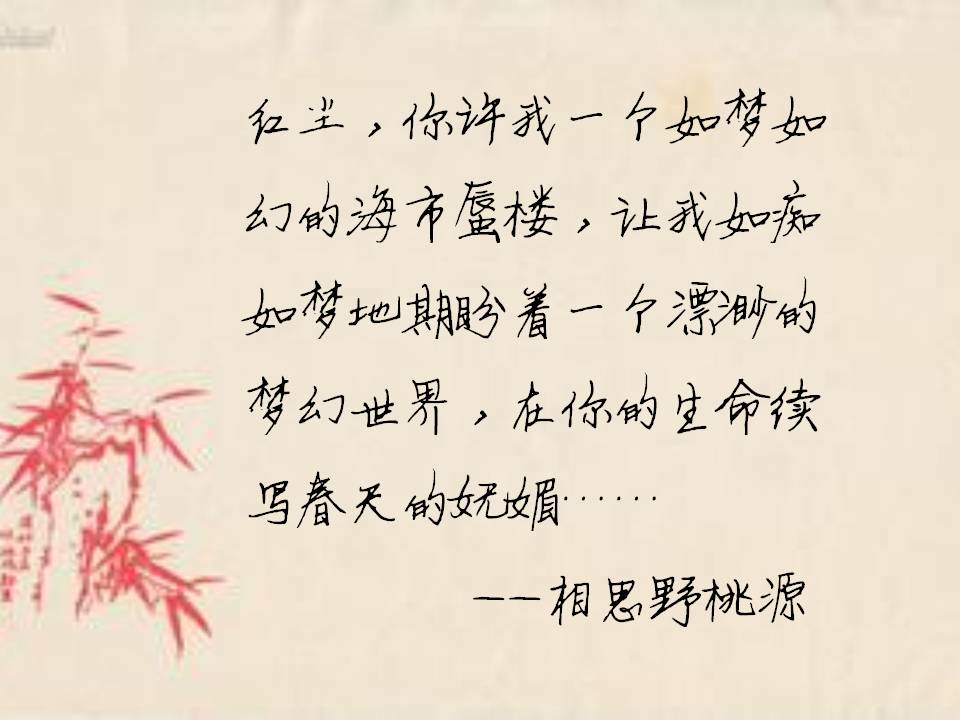 红尘，你许我一个如梦如
幻的海市蜃楼，让我如痴
如梦地期盼着一个漂渺的
梦幻世界，在你的生命续
写春天的妩媚……
——相思野桃源